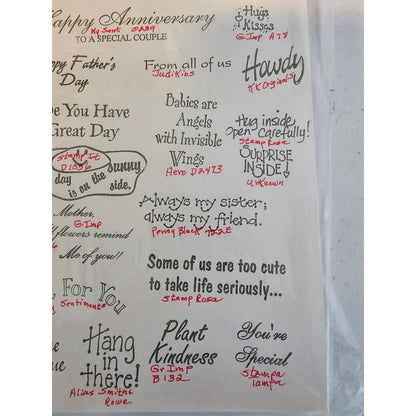 Happy Anniversary
My Sent 0239
TO A SPECIAL COUPLE
Hugs
Kisses
G.Imp A78
ppy Father's
Day
From all of us
JudiKins
Howdy
KK Originals
Babies are
Angels
with Invisible
Wings
Aero D2473
pe You Have
Great Day
Hug inside
Open Carefully!
Stamp Rosa
SURPRISE
INSIDE!
Unknown
Stamp It
D1036
day is on the sunny side.
Always my sister;
always my friend.
Penny Black 722E
Mother,
G.Imp
flowers remind
Me of you!!
Some of us are too cute
to take life seriously...
Stamp Rosa
For You
Sentiments
Hang
in
there!
Alias Smith &
Rowe
Plant
Kindness
Gr Imp
B132
You're
Special
Stampa